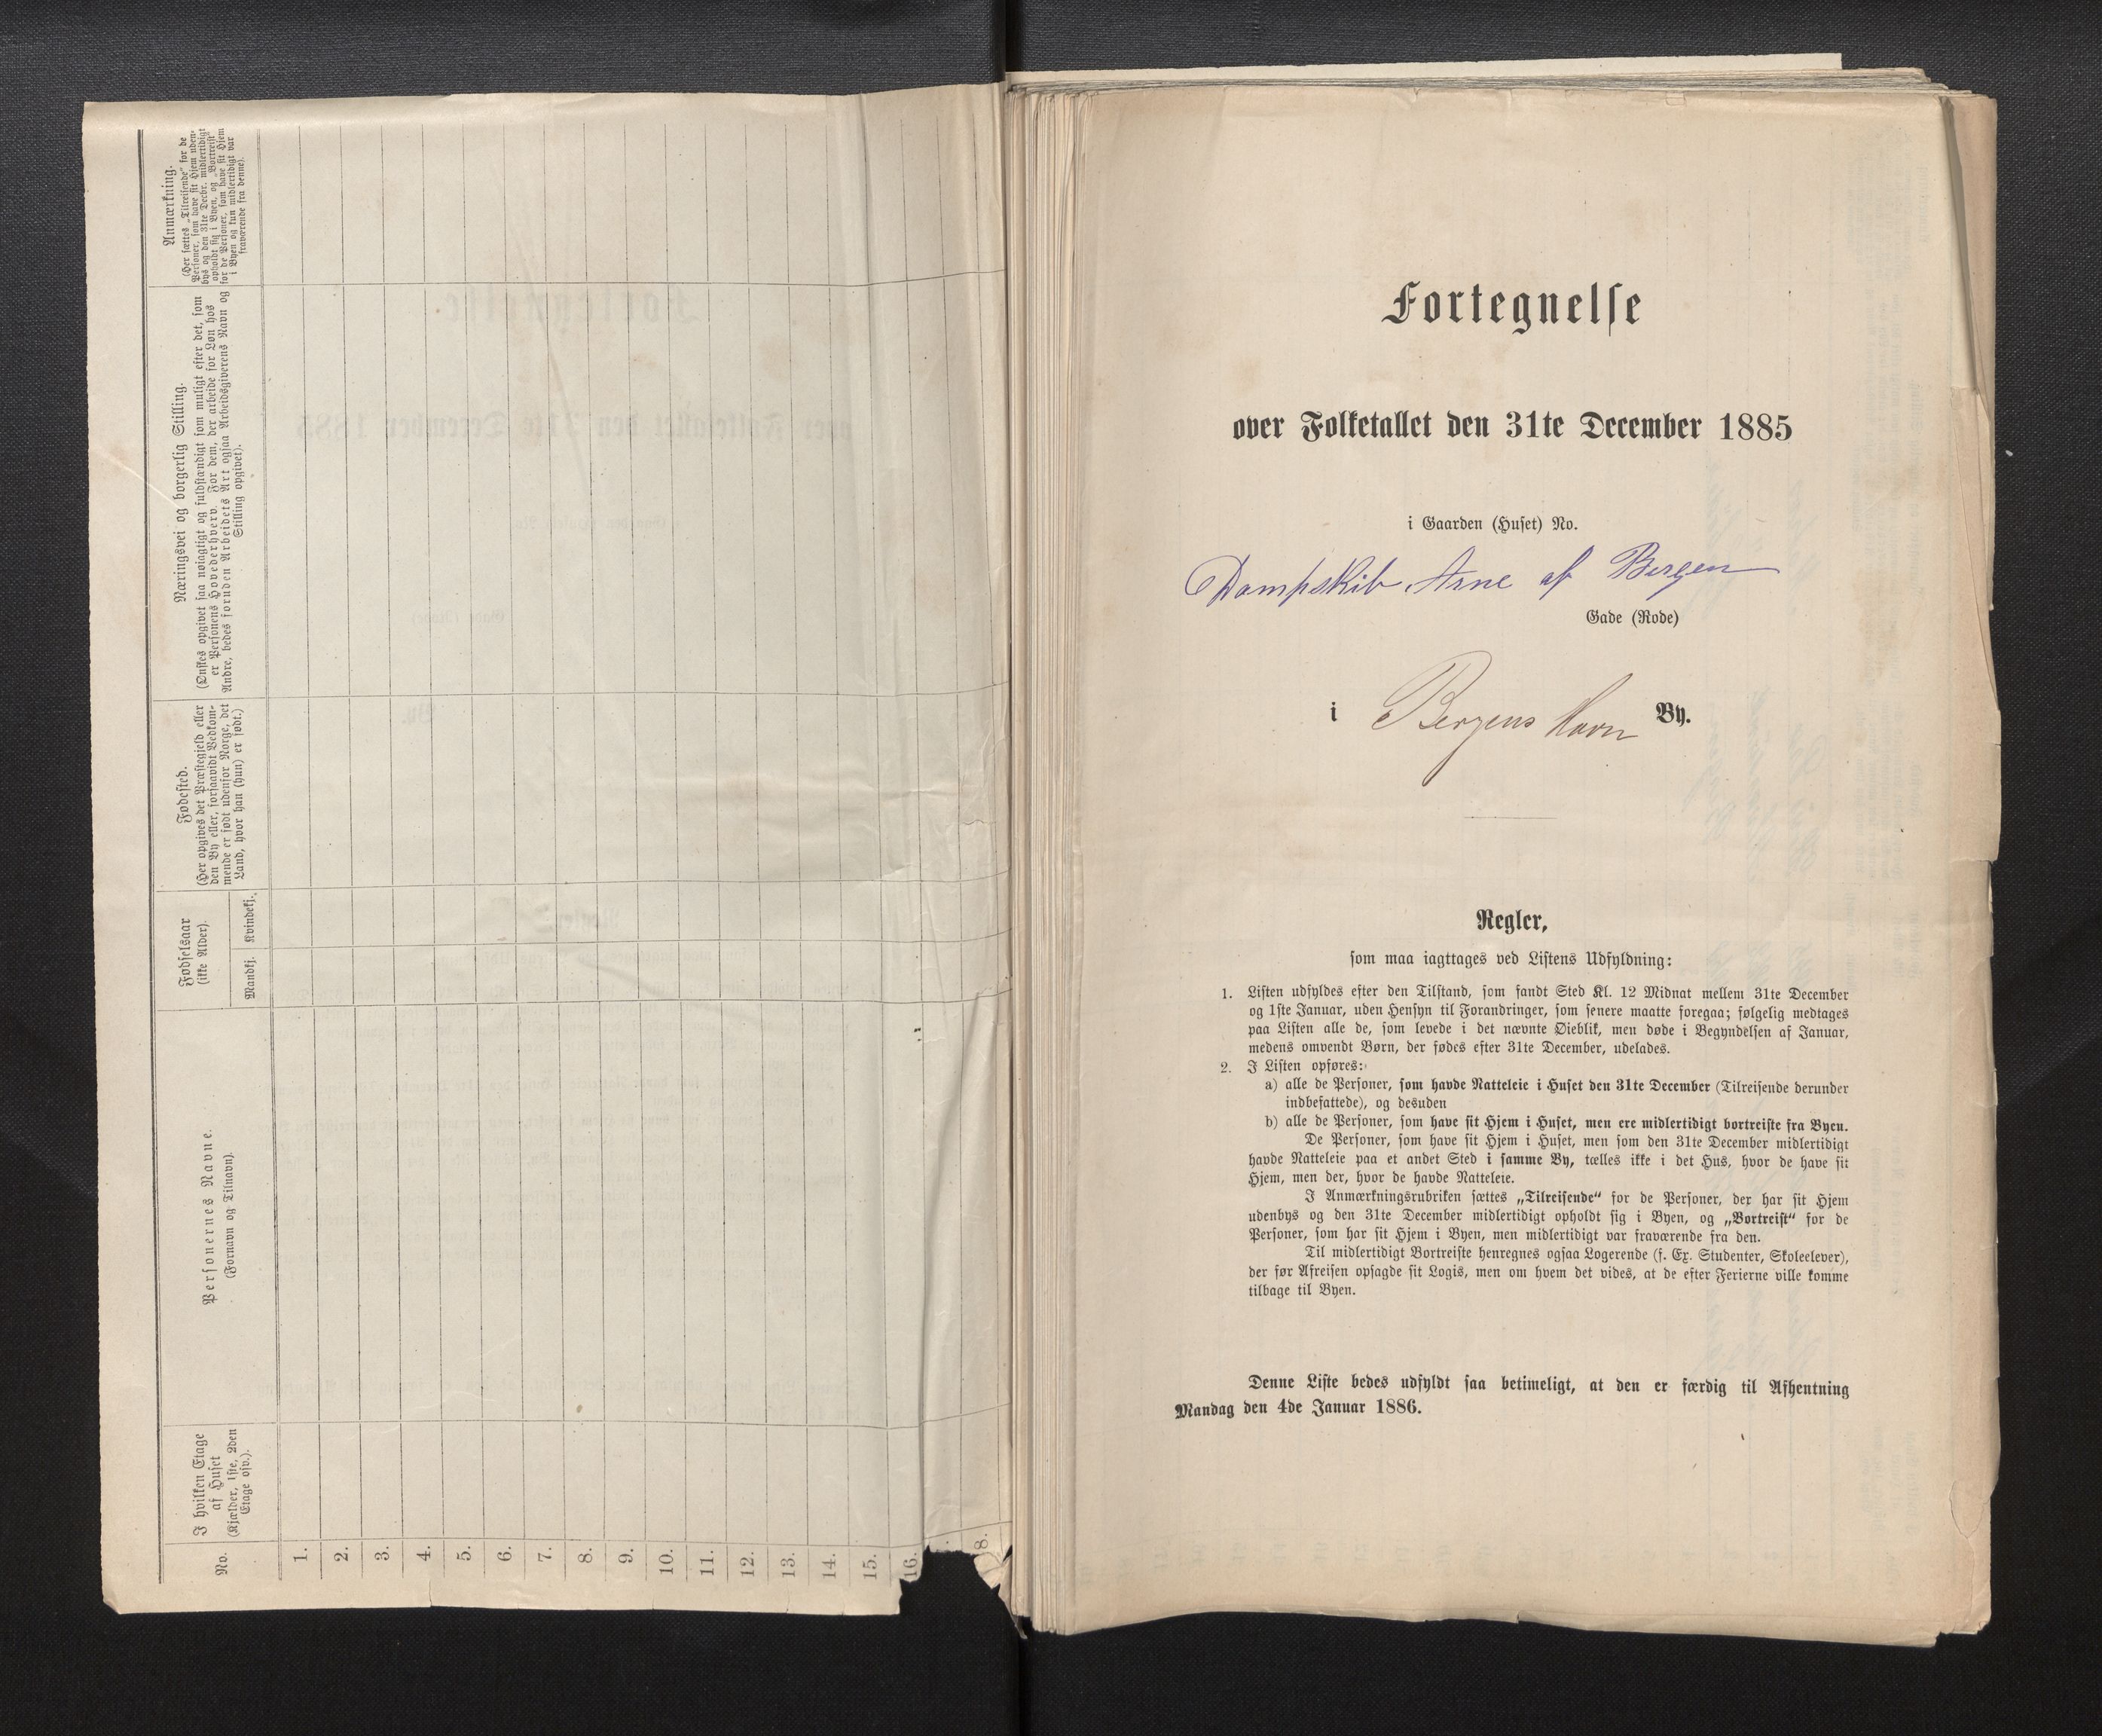 Anmærkning.
(Her sættes „Tilreisende" for de
Personer, som have sit Hjem uden-
bys og den 31te Decbr. midlertidigt
opholdt sig i Byen, og „Bortreist"
for de Personer, som have sit Hjem
i Byen og kun midlertidigt var
fraværende fra denne).
Næringsvei og borgerlig Stilling.
(Ønskes opgivet saa nøiagtigt og fuldstændigt som muligt efter det, som
er Personens Hovederhverv. For dem, der arbeide for Løn hos
Andre, bedes foruden Arbeidets Art ogsaa Arbeidsgiverens Navn og
Stilling opgivet).
Fødested.
(Her opgives det Præstegjeld eller
den By eller, forsaavidt Vedkom-
mende er født udenfor Norge, det
Land, hvor han (hun) er født.)
Fødselsaar
(ikke Alder).
Mandkj.
Kvindekj.
Personernes Navne.
(Fornavn og Tilnavn).
I hvilken Etage
af Huset
(Kjælder, 1ste, 2den
Etage osv.).
No.
1.
2.
3.
4.
5.
6.
7.
8.
9.
10.
11.
12.
13.
14.
15.
16.
8.
Fortegnelse
over Folketallet den 31te December 1885
i Gaarden (Huset) No.
Dampskib Arne af Bergen
Gade (Rode)
i Bergens Havn By.
Regler,
som maa iagttages ved Listens Udfyldning:
1. Listen udfyldes efter den Tilstand, som fandt Sted Kl. 12 Midnat mellem 31te December
og 1ste Januar, uden Hensyn til Forandringer, som senere maatte foregaa; følgelig medtages
paa Listen alle de, som levede i det nævnte Øieblik, men døde i Begyndelsen af Januar,
medens omvendt Børn, der fødes efter 31te December, udelades.
2. I Listen opføres:
a) alle de Personer, som havde Natteleie i Huset den 31te December (Tilreisende derunder
indbefattede), og desuden
b) alle de Personer, som have sit Hjem i Huset, men ere midlertidigt bortreiste fra Byen.
De Personer, som have sit Hjem i Huset, men som den 31te December midlertidigt
havde Natteleie paa et andet Sted i samme By, tælles ikke i det Hus, hvor de have sit
Hjem, men der, hvor de havde Natteleie.
I Anmærkningsrubriken sættes „Tilreisende" for de Personer, der har sit Hjem
udenbys og den 31te December midlertidigt opholdt sig i Byen, og „Bortreist" for de
Personer, som har sit Hjem i Byen, men midlertidigt var fraværende fra den.
Til midlertidigt Bortreiste henregnes ogsaa Logerende (f. Ex. Studenter, Skoleelever),
der før Afreisen opsagde sit Logis, men om hvem det vides, at de efter Ferierne ville komme
tilbage til Byen.
Denne Liste bedes udfyldt saa betimeligt, at den er færdig til Afhentning
Mandag den 4de Januar 1886.